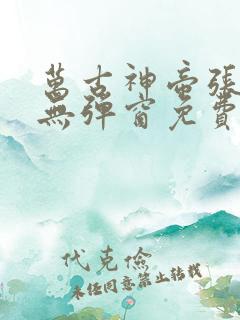 萬古神帝張
無彈窗免費
代克儉
未經同意禁止轉載